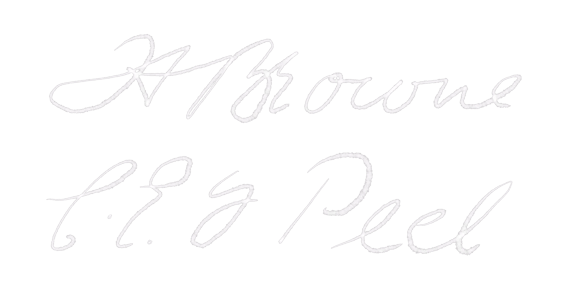 H Browne
C. E. J Peel